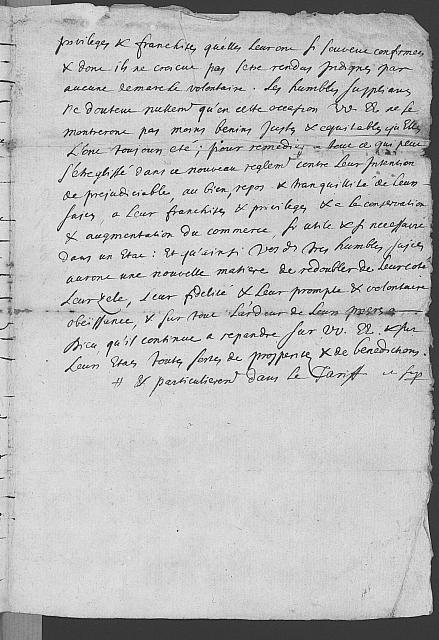 privileges & franchises qu'elles leur ont si souvent confirmées
& dont ils ne croient pas s'etre rendus indignes par
aucune demarche volontaire. Les humbles supplians
ne doutent nullem^t qu'en cette occasion VV. EE. ne se
montreront pas moins benins justes & equitables qu'Elles
l'ont toujours eté; pour remedier a tout ce qui peut
s'etre glissé dans ce nouveau reglem^t contre leur intention
de prejudiciable au bien, repos & tranquillité de leurs
sujets, a leur franchises & privileges & a la conservation
& augmentation du commerce, si utile & si necessaire
dans un Etat: Et qu'ainsi vos dts tres humbles sujets
auront une nouvelle matiere de redoubler de leur coté
leur zele, leur fidelité & leur prompte & volontaire
obeissance, & sur tout l'ardeur de leurs prieres a
Dieu qu'il continue a repandre sur VV. EE. & sur
leurs Etats toutes sortes de prosperités & de benedictions.
# & particulierem^t dans le Tariff